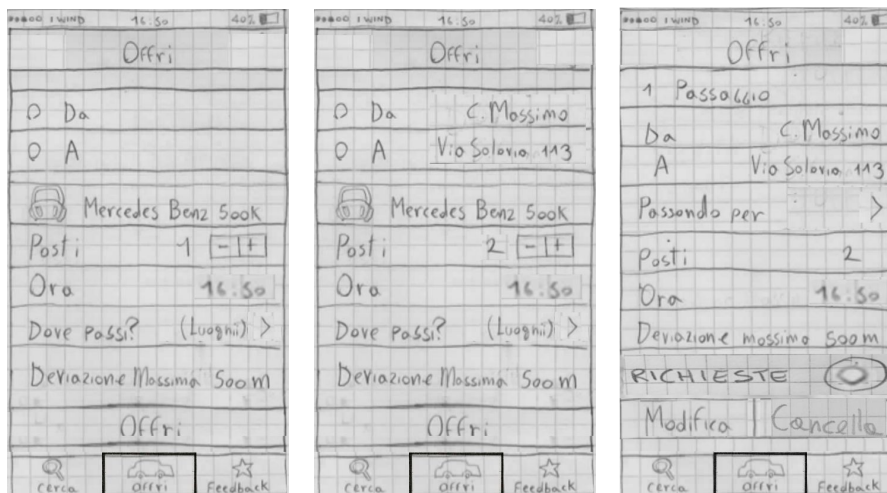 I WIND 16:50 40%
Offri
Da
A
Mercedes Benz 500K
Posti 1 - +
Ora 16:50
Dove passi? (Luoghi) >
Deviazione Massima 500m
Offri
Cerca Offri Feedback
I WIND 16:50 40%
Offri
Da C. Massimo
A Via Salaria 113
Mercedes Benz 500K
Posti 2 - +
Ora 16:50
Dove passi? (Luoghi) >
Deviazione Massima 500m
Offri
Cerca Offri Feedback
I WIND 16:50 40%
Offri
1 Passaggio
Da C. Massimo
A Via Salaria 113
Passando per >
Posti 2
Ora 16:50
Deviazione massima 500m
RICHIESTE
Modifica | Cancella
Cerca Offri Feedback